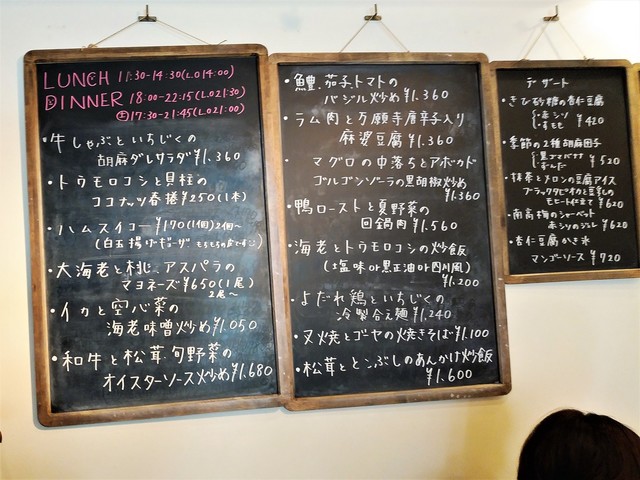 LUNCH 11:30-14:30(L.O14:00)
DINNER 18:00-22:15(L.O21:30)
㊏17:30-21:45(L.O21:00)
・牛しゃぶといちじくの
胡麻ダレサラダ¥1.360
・トウモロコシと貝柱の
ココナッツ春捲¥250(1本)
・ハムスイコー¥170(1個)2個〜
(白玉揚げギョーザ もちもちの皮ですョ)
・大海老と桃、アスパラの
マヨネーズ¥650(1尾)
2尾〜
・イカと空心菜の
海老味噌炒め¥1.050
・和牛と松茸、旬野菜の
オイスターソース炒め¥1.680
・鱧、茄子、トマトの
バジル炒め¥1.360
・ラム肉と万願寺唐辛子入り
麻婆豆腐¥1.360
・マグロの中落ちとアボカド
ゴルゴンゾーラの黒胡椒炒め
¥1.360
・鴨ローストと夏野菜の
回鍋肉¥1.560
・海老とトウモロコシの炒飯
(塩味or黒正油or四川風)
¥1.200
・よだれ鶏といちじくの
冷製合え麺¥1.240
・叉焼とゴーヤの焼きそば¥1.100
・松茸ととんぶしのあんかけ炒飯
¥1.600
デザート
・きび砂糖の杏仁豆腐
・赤シソ
・すもも ¥420
・季節の2種胡麻団子
・黒ゴマバナナ
・ずんだ ¥520
・抹茶とメロンの豆腐アイス
ブラックタピオカと豆乳の
モヒート仕立て¥620
・南高梅のシャーベット
赤シソのジュレ ¥620
・杏仁豆腐かき氷
マンゴーソース ¥720